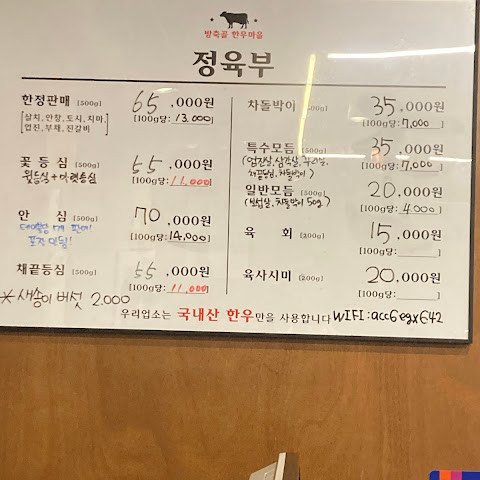 방축골 한우마을
정육부
한정판매 [500g] 65,000원
[살치, 안창, 토시, 치마, 업진, 부채, 진갈비] [100g당: 13,000]
꽃등심 [500g] 55,000원
윗등심 + 아랫등심 [100g당: 11,000]
안심 [500g] 70,000원
[100g당: 14,000]
포장 안됨!
채끝등심 [500g] 55,000원
[100g당: 11,000]
※ 새송이버섯 2.000
차돌박이 [500g] 35,000원
[100g당: 7,000]
특수모듬 [500g] 35,000원
[100g당: 7,000]
일반모듬 [500g] 20,000원
[100g당: 4,000]
육회 [200g] 15,000원
[100g당: ]
육사시미 [200g] 20,000원
[100g당: ]
우리업소는 국내산 한우만을 사용합니다 WIFI: acc6egx642